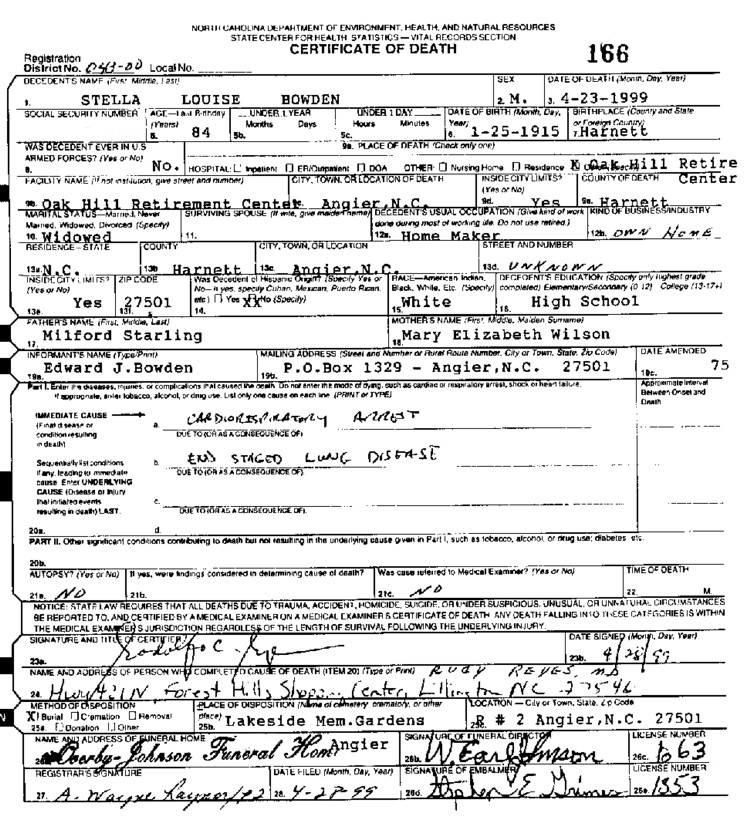 NORTH CAROLINA DEPARTMENT OF ENVIRONMENT, HEALTH, AND NATURAL RESOURCES
STATE CENTER FOR HEALTH STATISTICS — VITAL RECORDS SECTION
CERTIFICATE OF DEATH 166
Registration
District No. 043-00 Local No.
DECEDENT'S NAME (First, Middle, Last) SEX DATE OF DEATH (Month, Day, Year)
1. STELLA LOUISE BOWDEN 2. M. 3. 4-23-1999
SOCIAL SECURITY NUMBER AGE—Last Birthday UNDER 1 YEAR UNDER 1 DAY DATE OF BIRTH (Month, Day, BIRTHPLACE (County and State
(Years) Months Days Hours Minutes Year) or Foreign Country)
5. 84 5b. 5c. 6. 1-25-1915 7. Harnett
WAS DECEDENT EVER IN U.S 9a. PLACE OF DEATH (Check only one)
ARMED FORCES? (Yes or No)
8. No. HOSPITAL: Inpatient ER/Outpatient DOA OTHER: Nursing Home Residence X Oak Hill Retire
Center
FACILITY NAME (If not institution, give street and number) CITY, TOWN, OR LOCATION OF DEATH INSIDE CITY LIMITS? COUNTY OF DEATH
(Yes or No)
9b. Oak Hill Retirement Center Angier, N.C. 9d. Yes 9e. Harnett
MARITAL STATUS—Married, Never SURVIVING SPOUSE (If wife, give maiden name) DECEDENT'S USUAL OCCUPATION (Give kind of work KIND OF BUSINESS/INDUSTRY
Married, Widowed, Divorced (Specify) done during most of working life. Do not use retired.)
10. Widowed 11. 12a. Home Maker 12b. OWN HOME
RESIDENCE - STATE COUNTY CITY, TOWN, OR LOCATION STREET AND NUMBER
13a. N.C. 13b Harnett 13c. Angier, N.C. 13d. UNKNOWN
INSIDE CITY LIMITS? ZIP CODE Was Decedent of Hispanic Origin? (Specify Yes or RACE—American Indian, DECEDENT'S EDUCATION (Specify only highest grade
(Yes or No) No—If yes, specify Cuban, Mexican, Puerto Rican, Black, White, Etc. (Specify) completed) Elementary/Secondary (0-12) College (13-17+)
etc.) Yes XX No (Specify)
13e. Yes 13f. 27501 14. 15. White 16. High School
FATHER'S NAME (First, Middle, Last) MOTHER'S NAME (First, Middle, Maiden Surname)
17. Milford Starling 18. Mary Elizabeth Wilson
INFORMANT'S NAME (Type/Print) MAILING ADDRESS (Street and Number or Rural Route Number, City or Town, State, Zip Code) DATE AMENDED
19a. Edward J.Bowden 19b. P.O.Box 1329 - Angier,N.C. 27501 19c. 75
Part I. Enter the diseases, injuries, or complications that caused the death. Do not enter the mode of dying, such as cardiac or respiratory arrest, shock or heart failure. Approximate Interval
If appropriate, enter tobacco, alcohol, or drug use. List only one cause on each line. (PRINT or TYPE) Between Onset and
Death
IMMEDIATE CAUSE
(Final disease or a. CARDIORESPIRATORY ARREST
condition resulting DUE TO (OR AS A CONSEQUENCE OF)
in death)
Sequentially list conditions b. END STAGED LUNG DISEASE
if any, leading to immediate DUE TO (OR AS A CONSEQUENCE OF)
cause. Enter UNDERLYING
CAUSE (Disease or injury c.
that initiated events DUE TO (OR AS A CONSEQUENCE OF)
resulting in death) LAST.
20a. d.
PART II. Other significant conditions contributing to death but not resulting in the underlying cause given in Part I, such as tobacco, alcohol, or drug use; diabetes etc.
20b.
AUTOPSY? (Yes or No) If yes, were findings considered in determining cause of death? Was case referred to Medical Examiner? (Yes or No) TIME OF DEATH
21a. NO 21b. 21c. NO 22. M.
NOTICE: STATE LAW REQUIRES THAT ALL DEATHS DUE TO TRAUMA, ACCIDENT, HOMICIDE, SUICIDE, OR UNDER SUSPICIOUS, UNUSUAL, OR UNNATURAL CIRCUMSTANCES
BE REPORTED TO, AND CERTIFIED BY A MEDICAL EXAMINER ON A MEDICAL EXAMINER'S CERTIFICATE OF DEATH. ANY DEATH FALLING INTO THESE CATEGORIES IS WITHIN
THE MEDICAL EXAMINER'S JURISDICTION REGARDLESS OF THE LENGTH OF SURVIVAL FOLLOWING THE UNDERLYING INJURY.
SIGNATURE AND TITLE OF CERTIFIER DATE SIGNED (Month, Day, Year)
23a. Rodolfo C. 23b. 4/28/99
NAME AND ADDRESS OF PERSON WHO COMPLETED CAUSE OF DEATH (ITEM 20) (Type or Print) RUDY REYES, MD
24. Hwy 421 N, Forest Hills Shopping Center, Lillington NC 27546
METHOD OF DISPOSITION PLACE OF DISPOSITION (Name of cemetery, crematory, or other LOCATION — City or Town, State, Zip Code
X Burial Cremation Removal place)
25a. Donation Other 25b. Lakeside Mem.Gardens 25c. R # 2 Angier,N.C. 27501
NAME AND ADDRESS OF FUNERAL HOME SIGNATURE OF FUNERAL DIRECTOR LICENSE NUMBER
Overby-Johnson Funeral Home Angier 26b. W. Earl Johnson 26c. 663
REGISTRAR'S SIGNATURE DATE FILED (Month, Day, Year) SIGNATURE OF EMBALMER LICENSE NUMBER
27. A. Wayne Raynor 28. 4-28-99 26d. Stephen E Grimes 26e. 1353
N